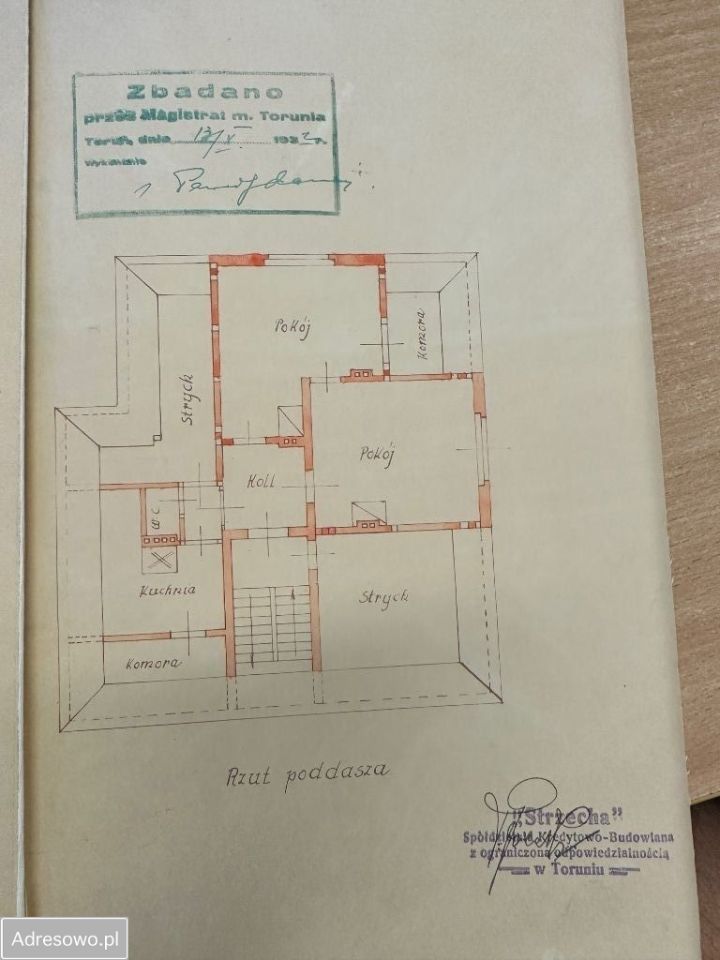 Zbadano
przez Magistrat m. Torunia
Toruń, dnia 13/V 1932 r.
Wykonanie
Pokój
Komora
Strych
Pokój
Koll
W C
Kuchnia
Strych
Komora
Rzut poddasza
„Strzecha”
Spółdzielnia Kredytowo-Budowlana
z ograniczoną odpowiedzialnością
w Toruniu
Adresowo.pl